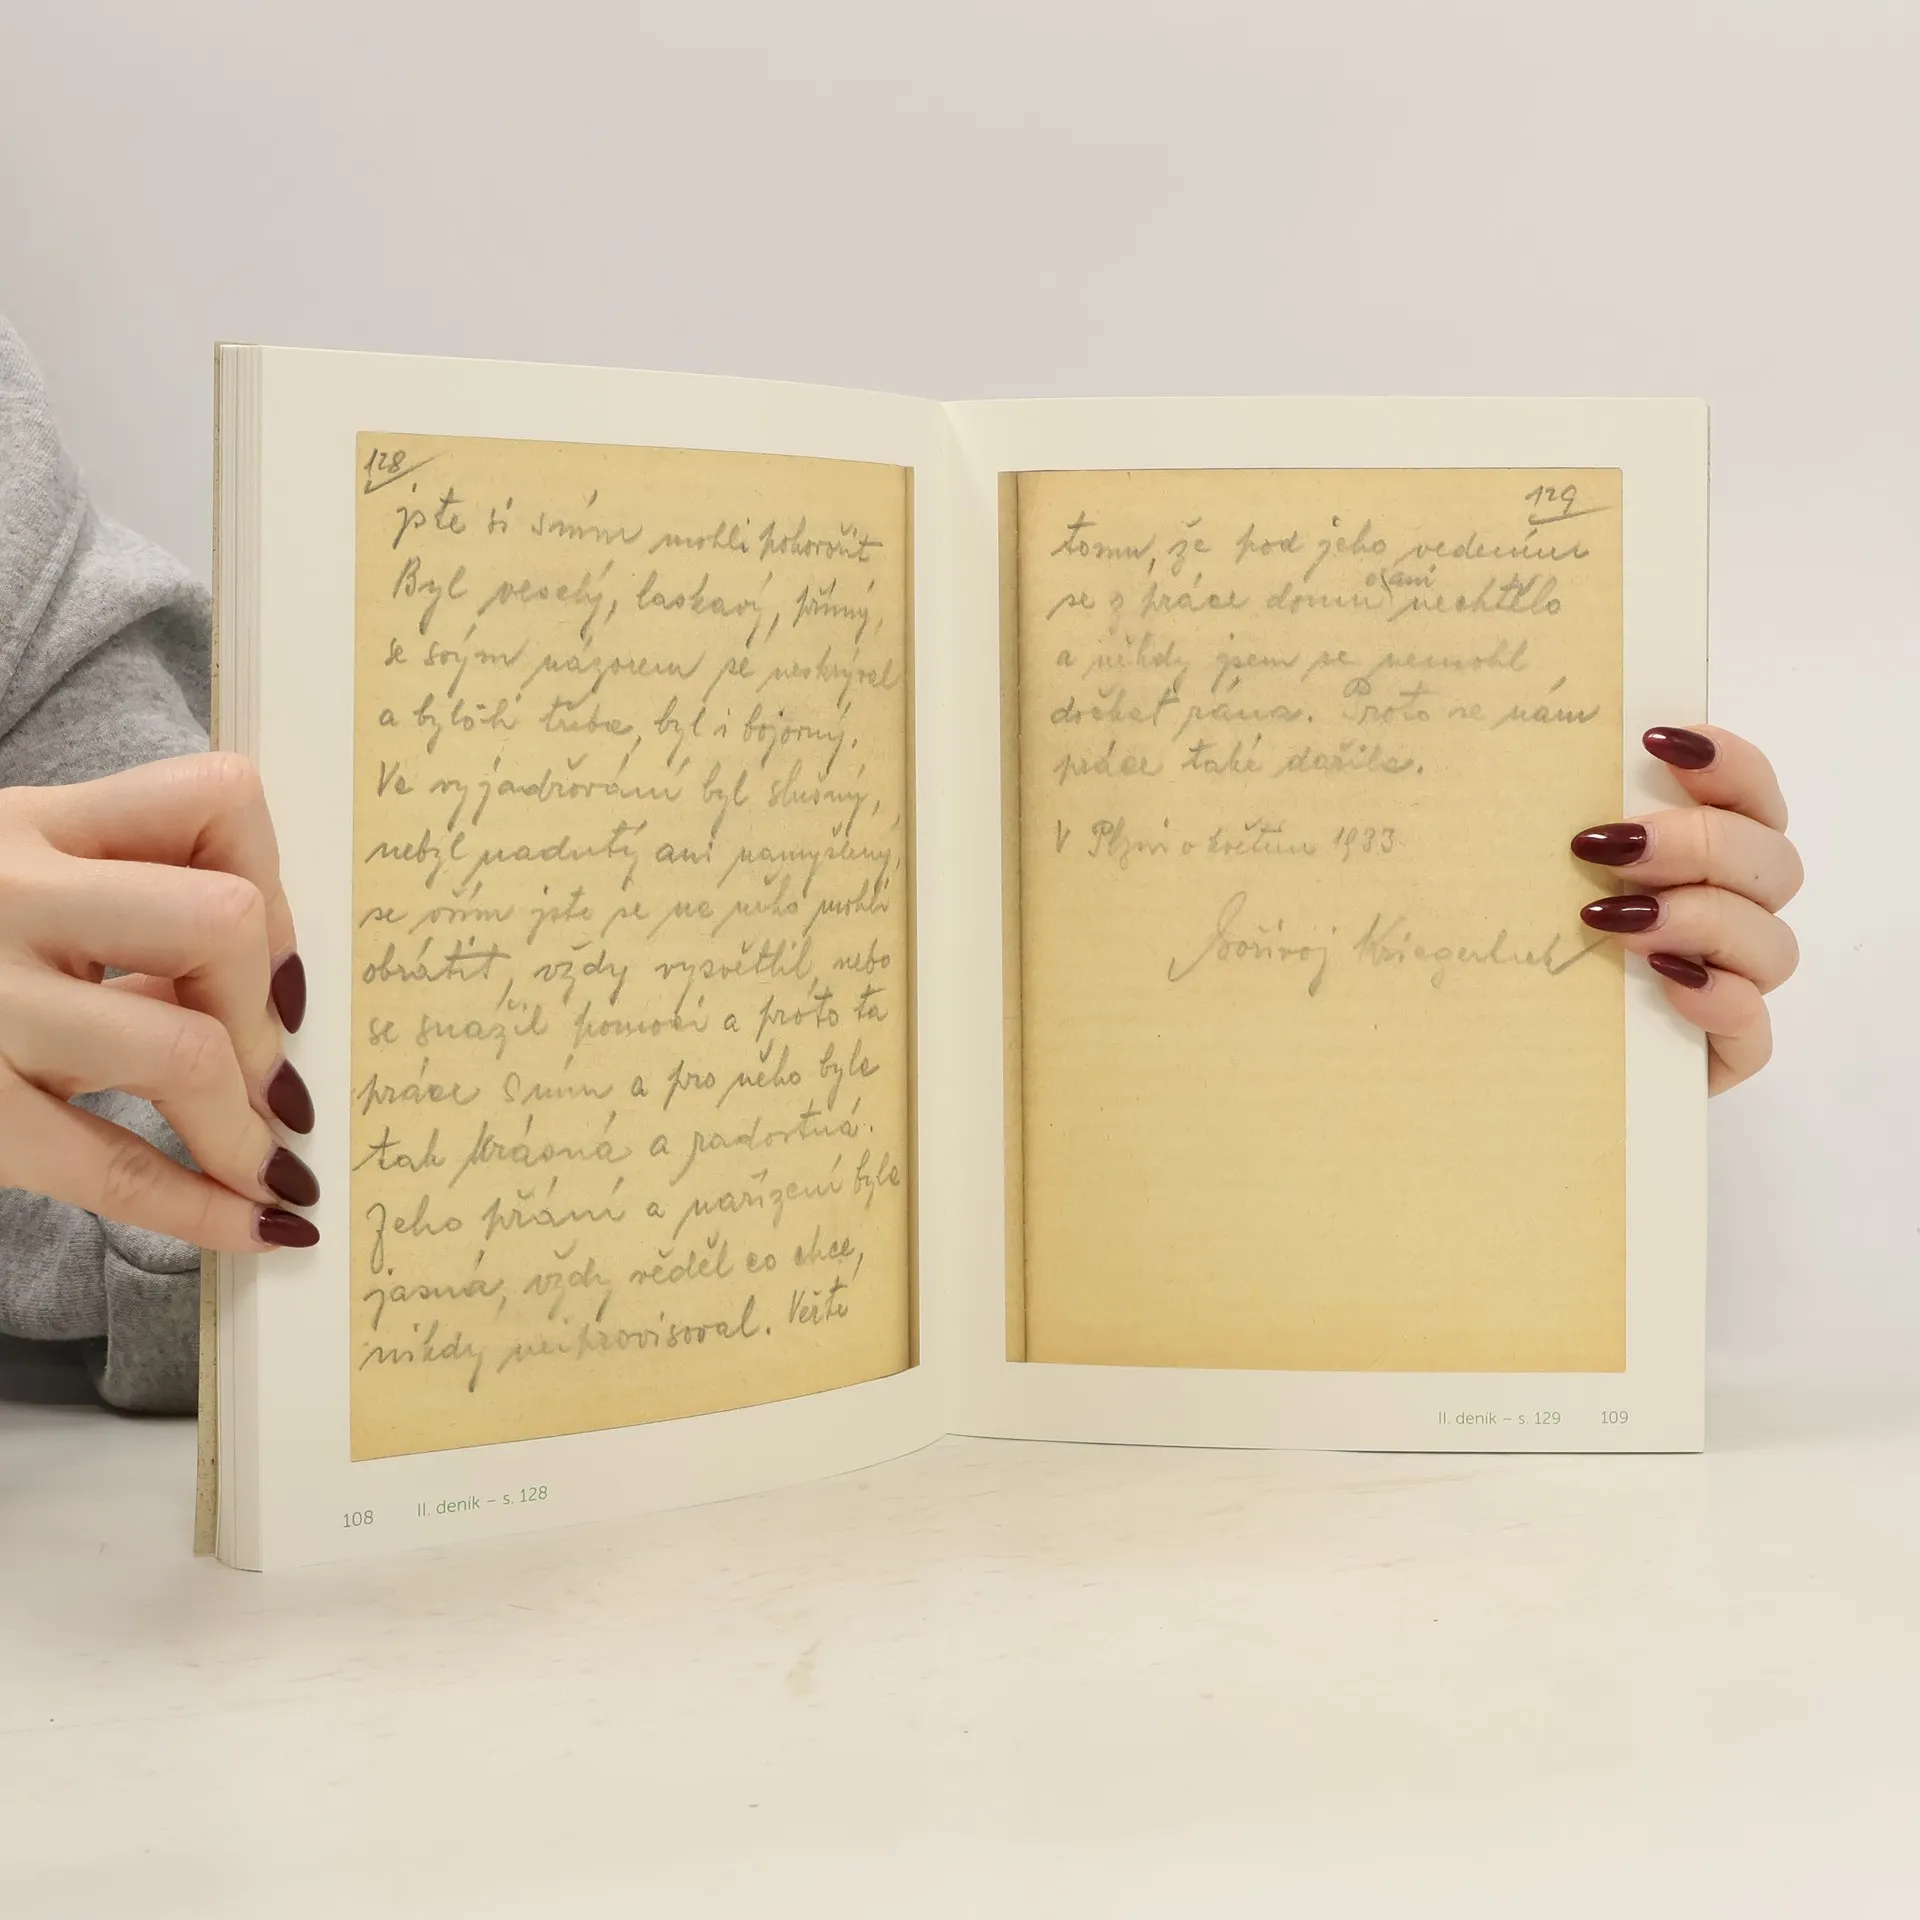 128
jste si s ním mohli pohovořit
Byl veselý, laskavý, přímý,
se svým názorem se neskrýval
a bylo-li třeba, byl i bojovný.
Ve vyjadřování byl slušný,
nebyl nadutý ani namyšlený,
se vším jste se na něho mohli
obrátit, vždy vysvětlil, nebo
se snažil pomoci a proto ta
práce s ním a pro něho byla
tak krásná a radostná.
Jeho přání a nařízení byla
jasná, vždy věděl co chce,
nikdy neiprovisoval. Věřte
108 II. deník – s. 128
129
tomu, že pod jeho vedením
se z práce domů ani nechtělo
a někdy jsem se nemohl
dočkat rána. Proto se nám
práce také dařila.
V Plzni v květnu 1933
Bořivoj Kriegerbeck
II. deník – s. 129 109